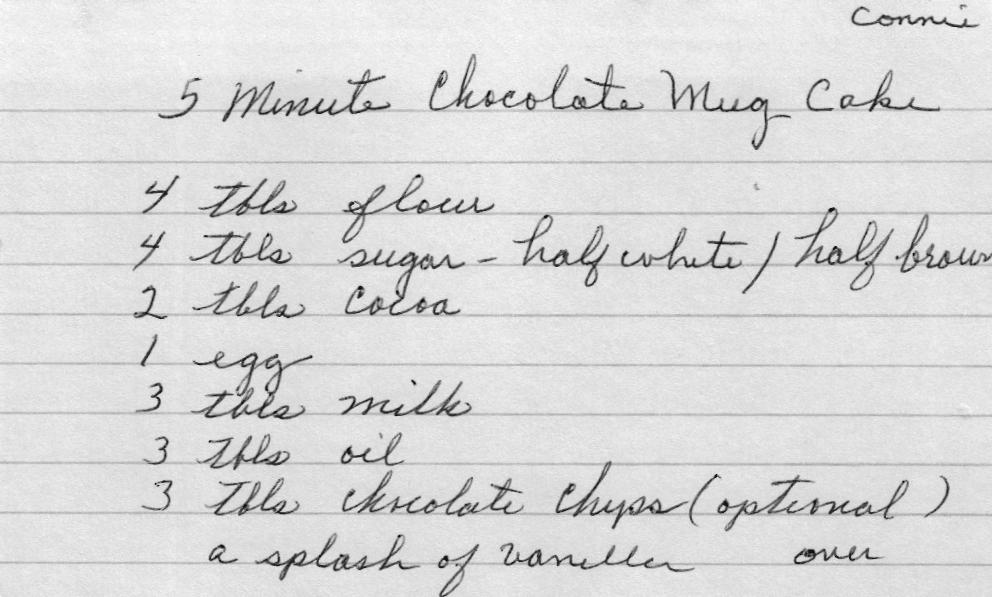 Connie
5 Minute Chocolate Mug Cake
4 tbls flour
4 tbls sugar - half white / half brown
2 tbls cocoa
1 egg
3 tbls milk
3 tbls oil
3 tbls chocolate chips (optional)
a splash of vanilla over